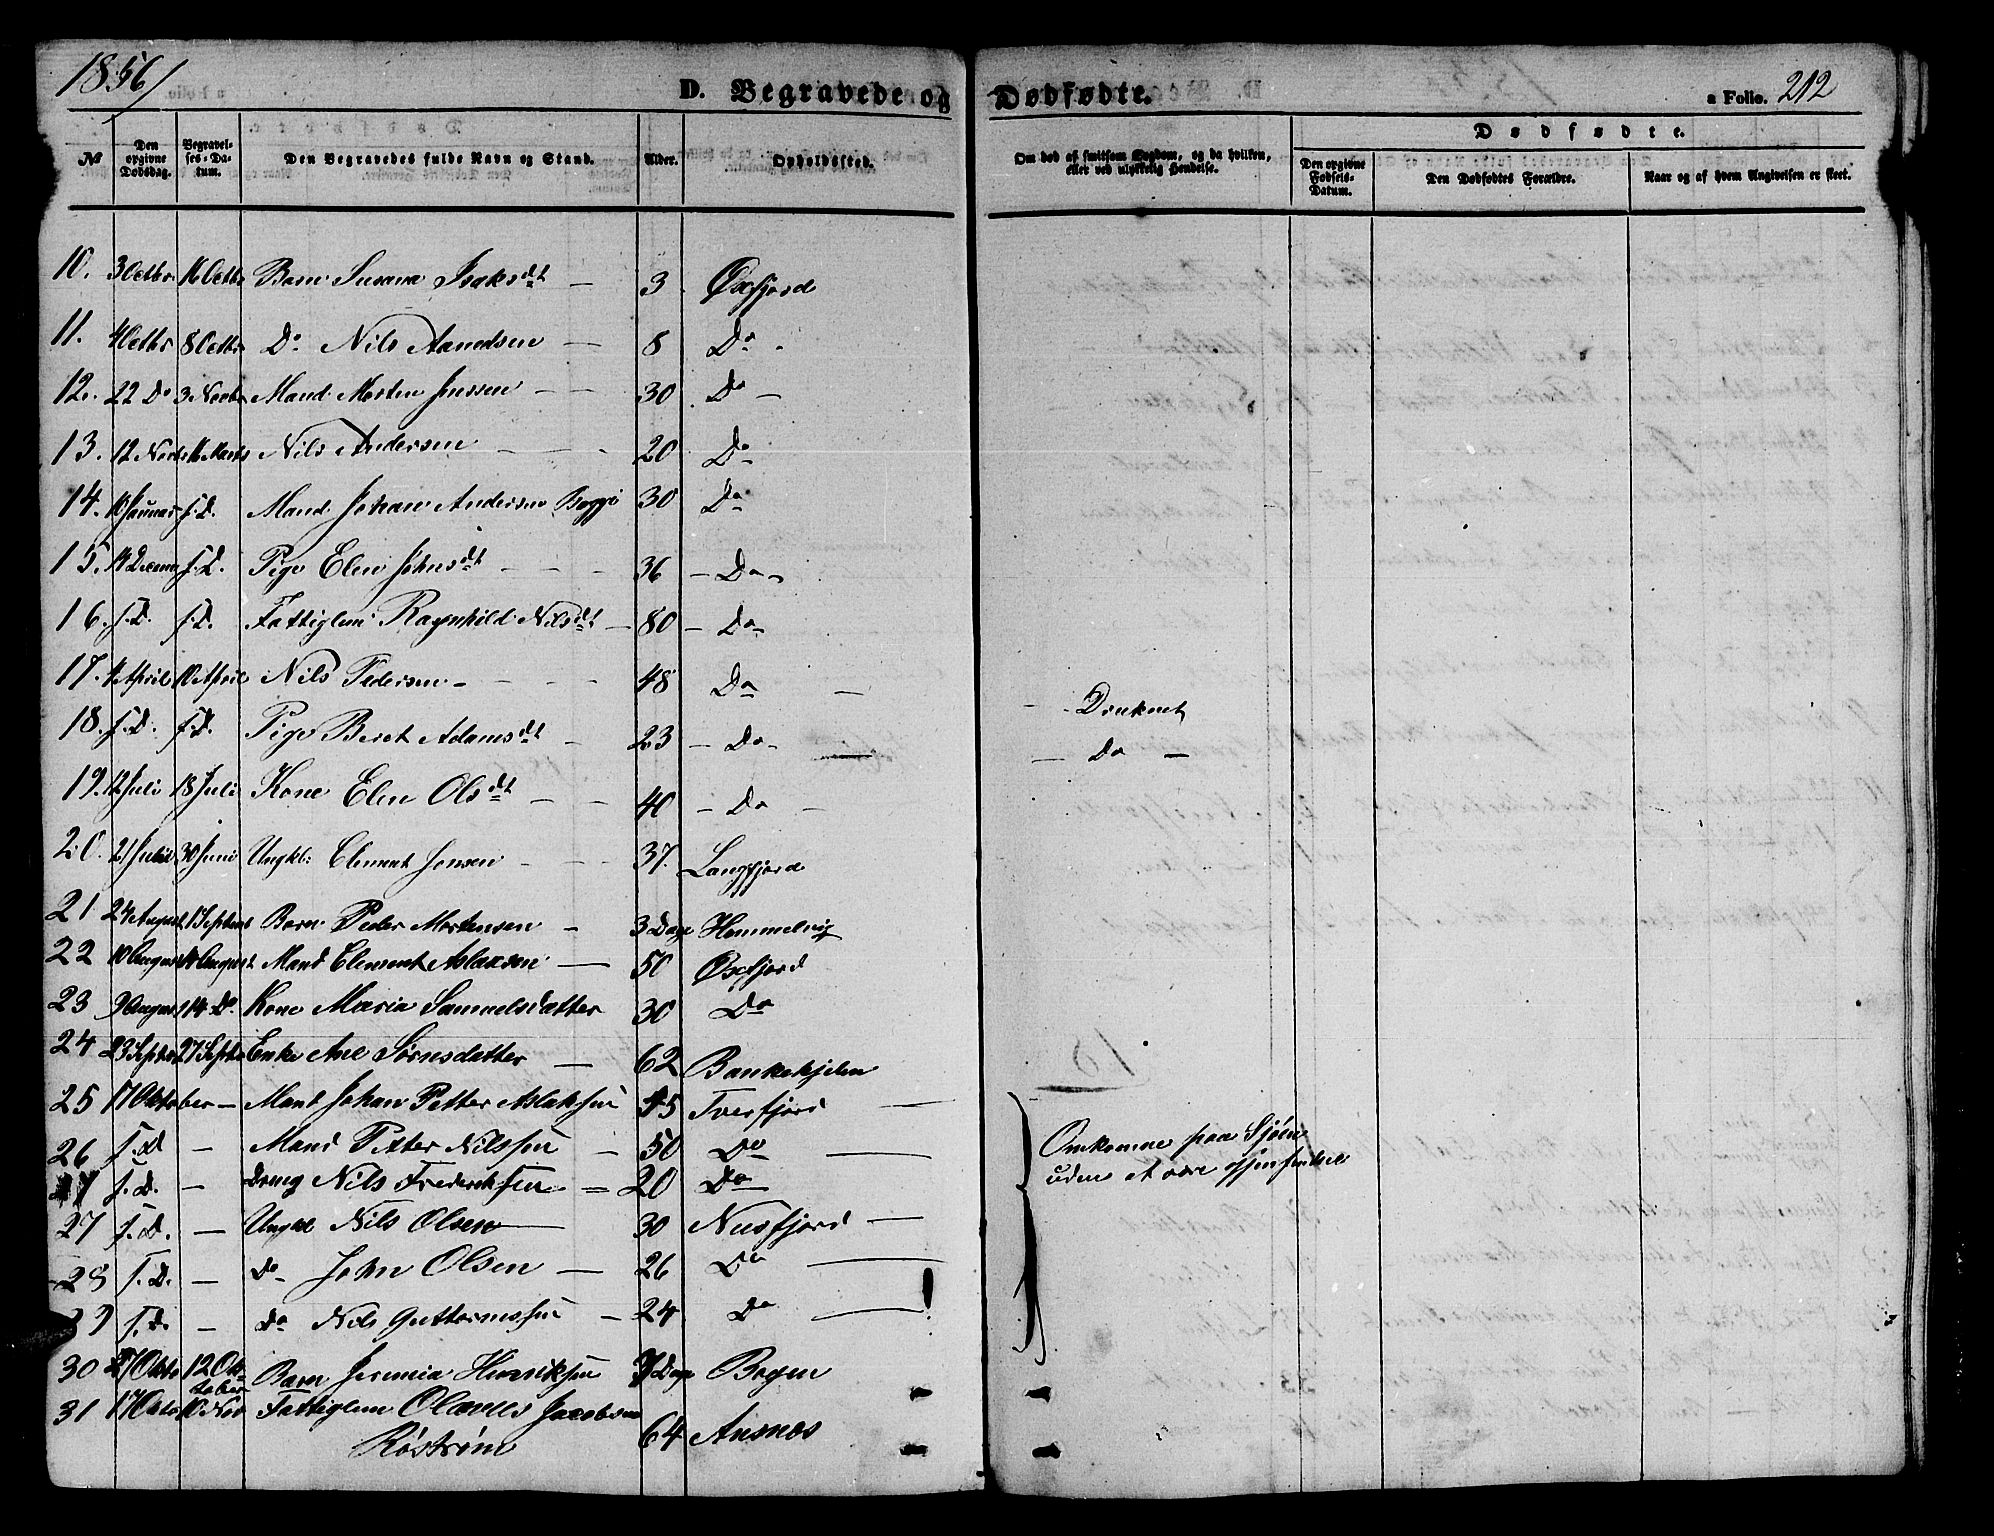 1856
D. Begravede og Dødfødte. a Folio. 212
№ Den opgivne Dødsdag. Begravelses-Datum. Den Begravedes fulde Navn og Stand. Alder. Opholdssted. Om død af smitsom Sygdom, og da hvilken, eller ved ulykkelig Hendelse. Dødfødte. Den opgivne Fødsels-Datum. Den Dødfødtes Forældre. Naar og af hvem Angivelsen er skeet.
10. 3 Octbr 16 Octbr Barn Susana Isaksdt — 3 Øxfjord
11. 4 Octbr 8 Octbr Do Nils Amundsen — 8 Do
12. 22 Do 3 Novbr Mand Morten Jenssen — 30 Do
13. 12 Novbr 16 Marts Nils Andersen — 20 Do
14. Januar s. D. Mand Johan Andersen 30 Do
15. 14 Decem s. D. Pige Elen Johnsdt — 36 — Do
16. s. D. s. D. Fattiglem Ragnhild Nilsdt — 80 — Do
17. 4 April 10 April Nils Pedersen — 48 Do — Druknet
18. s. D. s. D. Pige Beret Adamsdt — 23 — Do — Do —
19. 12 Juli 18 Juli Kone Elen Olsdt — 40 — Do —
20. 21 30 Juni Ungkl: Clement Jonsen — 37. Langfjord
21 24 August 1 Septemb Barn Peder Mortensen — 3 Dage Hommelvig
22 10 August 14 August Mand Clement Aslaksen — 50 Øxfjord
23 9 August 14 Do Kone Maria Samuelsdatter 30 Do
24 23 Septbr 27 Septbr Enke Ane Sørnsdatter — 62 Bankekjelen
25 17 Oktober — Mand Johan Petter Aslaksen 45 Tverfjord —
26 s. D — Mand Petter Nilssen — 50 Do — Omkomne paa Sjøen
s. D. — Dreng Nils Frederiksen — 20 Do uden at være gjenfundet
27 s. D. — Ungkl Nils Olsen — 30 Nusfjord —
28 s. D. — Do John Olsen — 26 Do —
29 s. D. — Do Nils Guttormssen — 24 Do —
30 Okto 12 Oktober Barn Jeremia Henriksen Dage Bogen
31 17 Okto 10 Nov Fattiglem Olaves Jacobsen 64 Ansnæs
Røstrøm